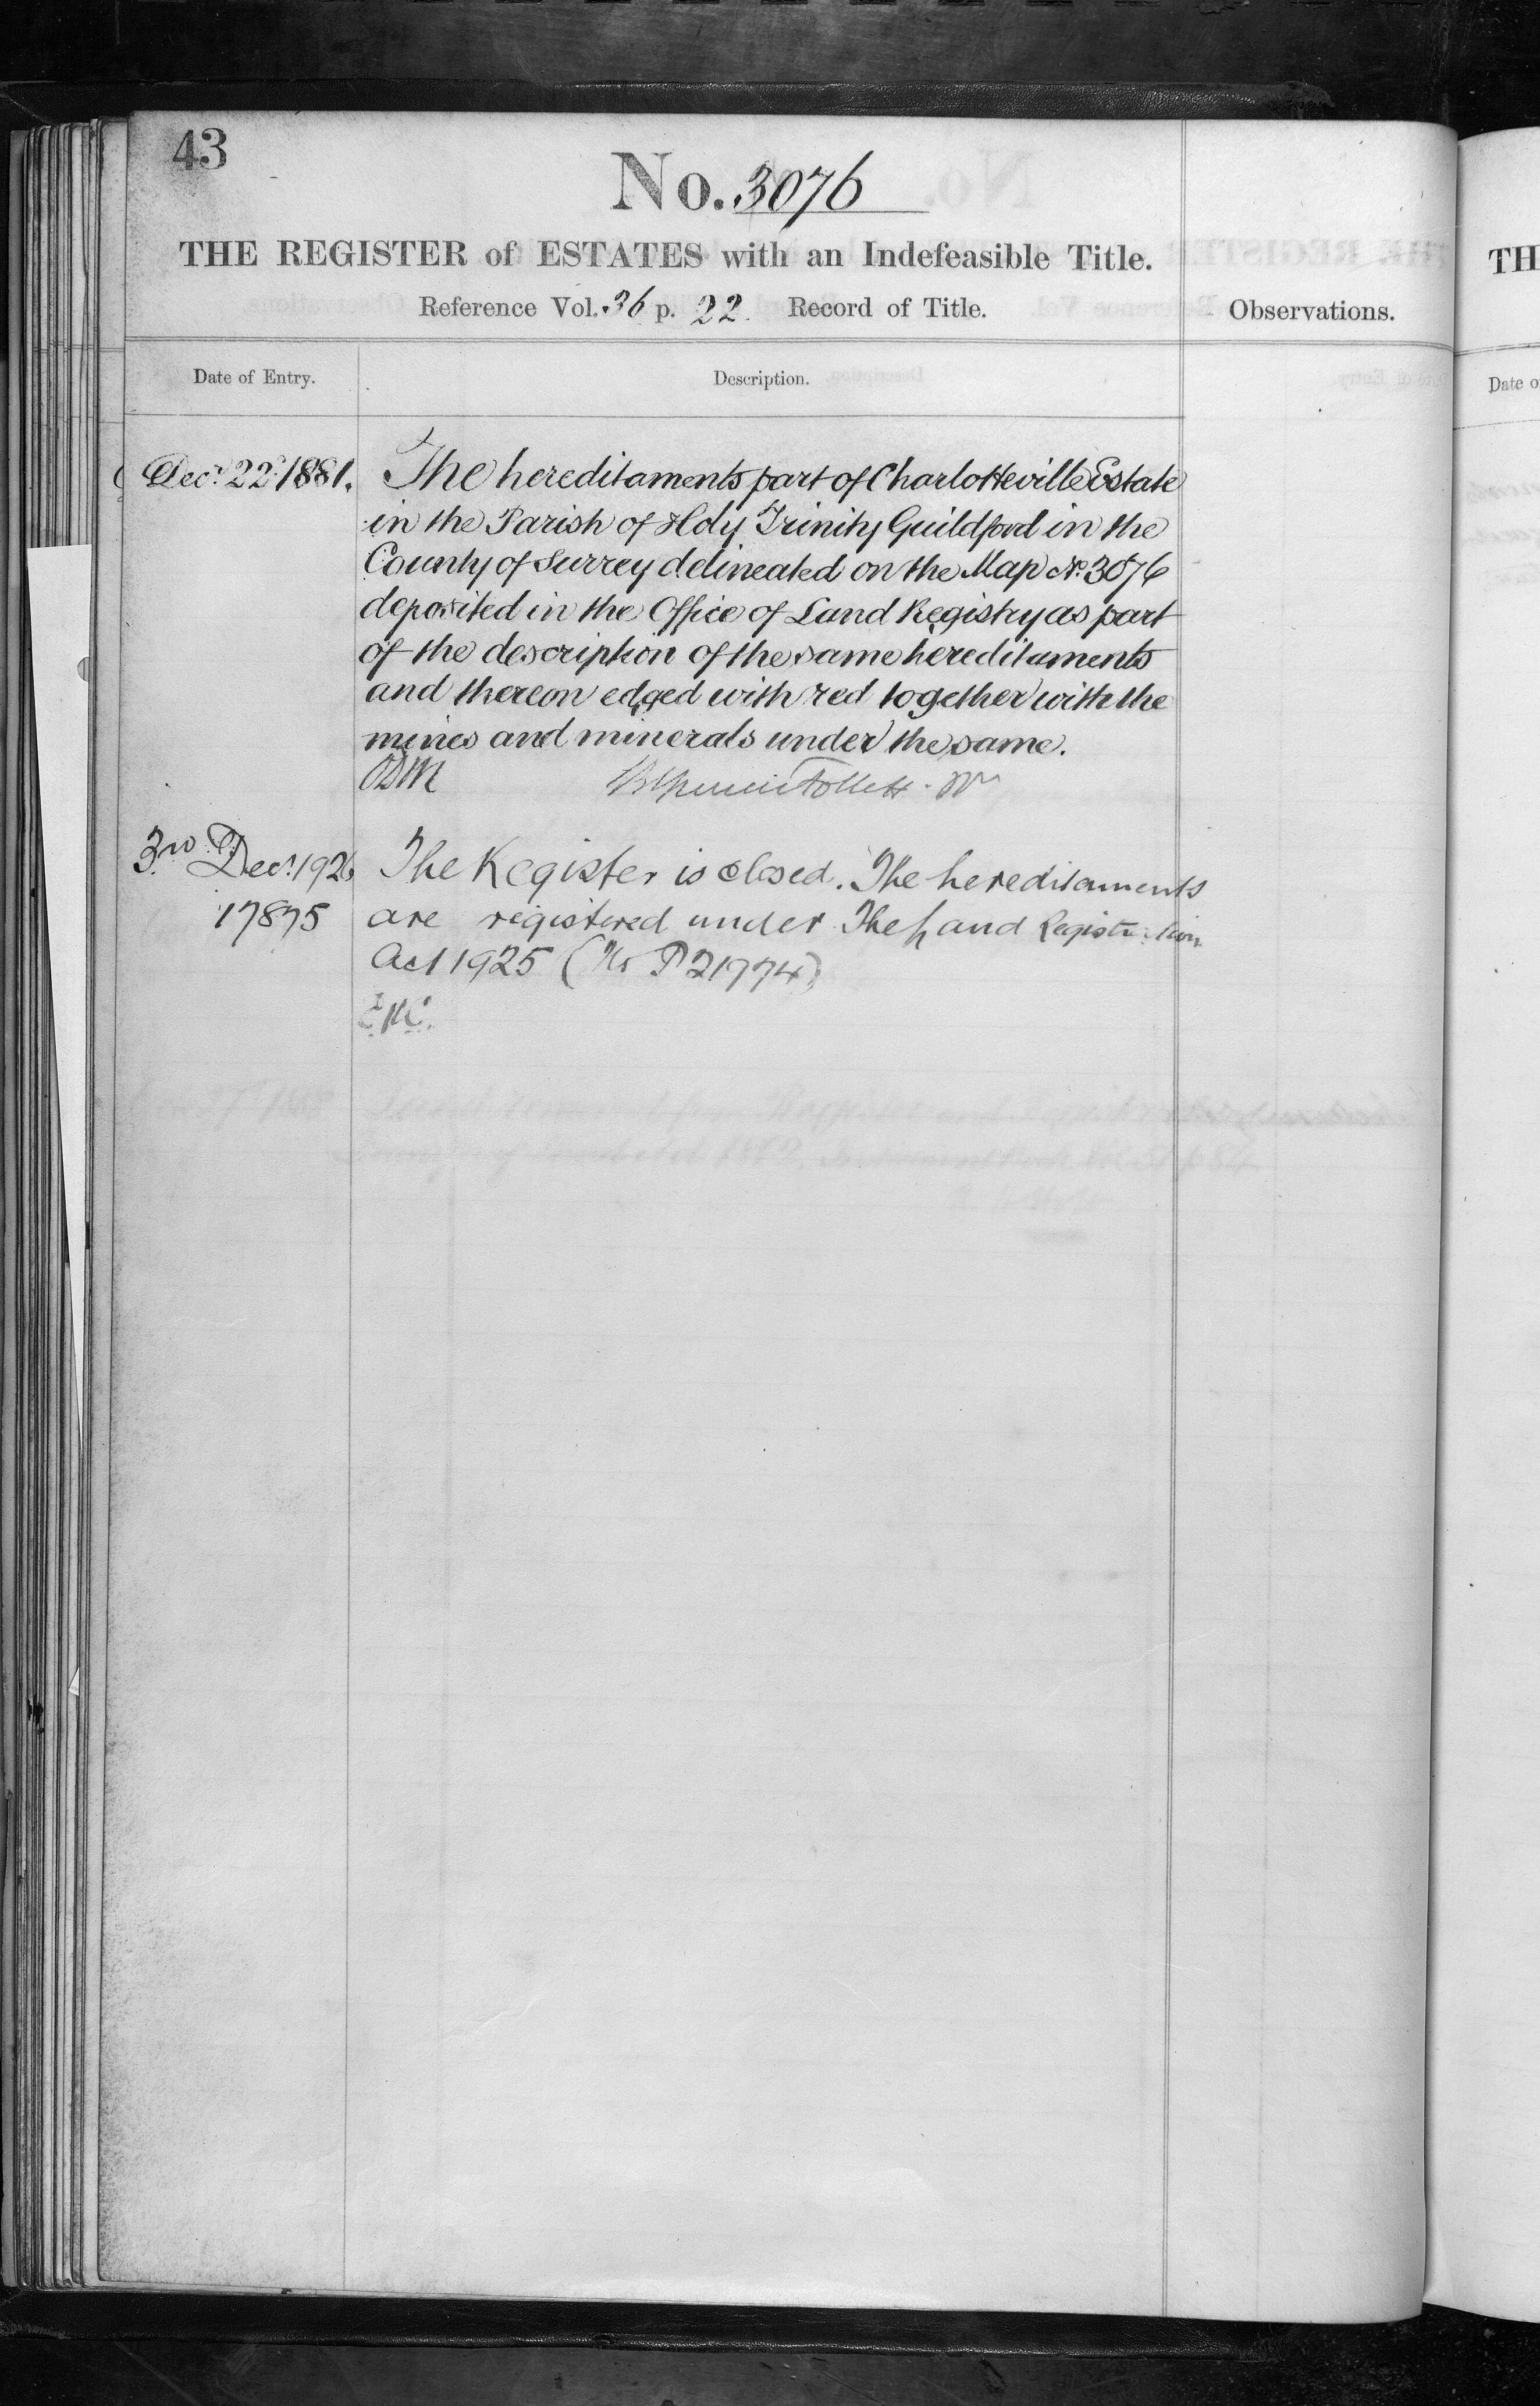 43
No. 3076
THE REGISTER of ESTATES with an Indefeasible Title.
Reference Vol. 36 p. 22. Record of Title.
Observations.
Date of Entry.
Description.
Decr. 22d 1881.
The hereditaments part of Charlotteville Estate
in the Parish of Holy Trinity Guildford in the
County of Surrey delineated on the Map No. 3076
deposited in the Office of Land Registry as part
of the description of the same hereditaments
and thereon edged with red together with the
mines and minerals under the same.
Follett
3rd Decr. 1926
17875
The Register is closed. The hereditaments
are registered under The Land Registration
Act 1925 (No P21774)
TH
Date o